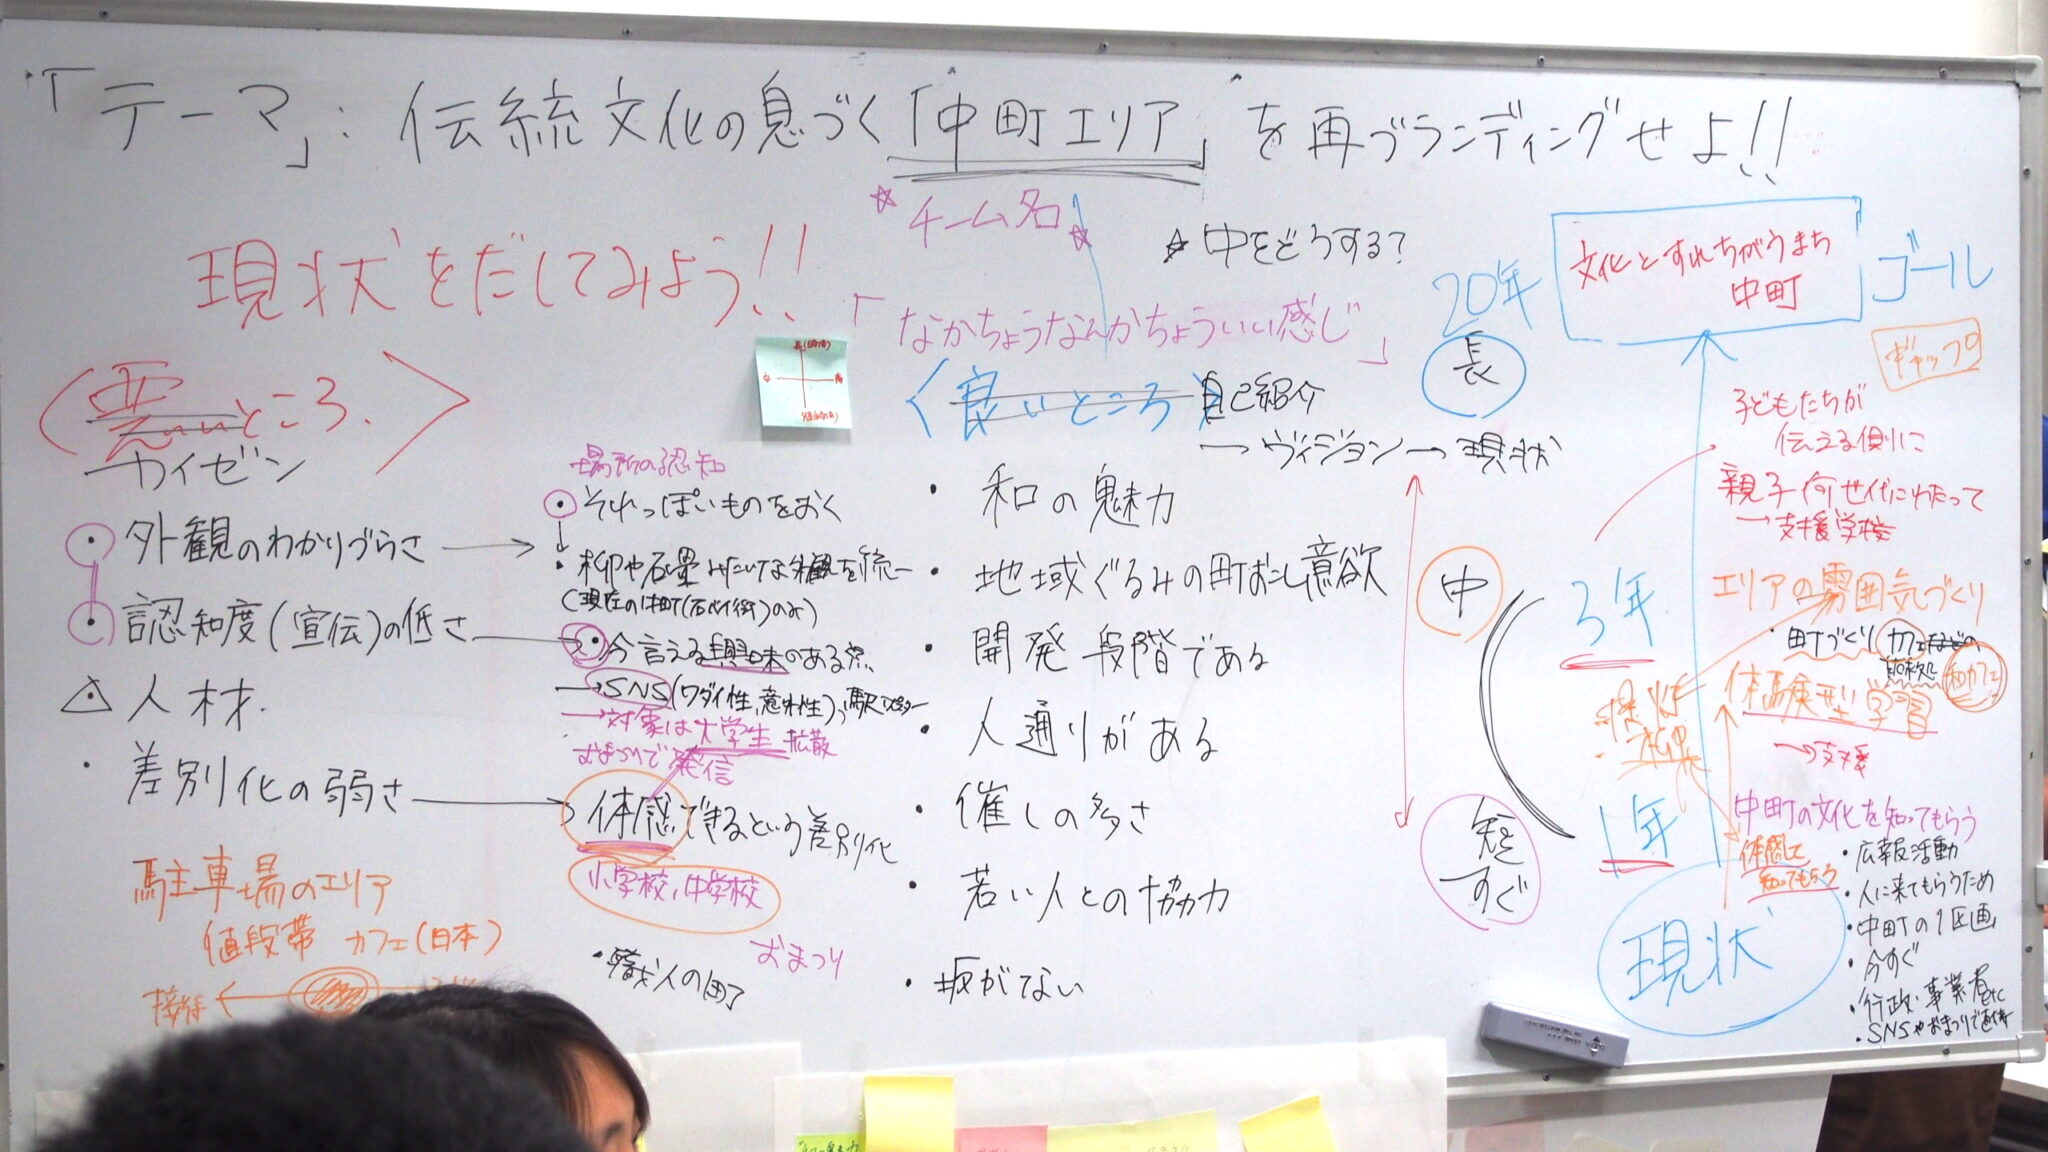 「テーマ」:伝統文化の息づく「中町エリア」を再ブランディングせよ!!
☆チーム名☆
☆中をどうする?
現状をだしてみよう!!
「なかちょうなんかちょういい感じ」
〈悪いところ.〉
カイゼン
・外観のわかりづらさ →
・認知度(宣伝)の低さ →
△人材.
・差別化の弱さ →
駐車場のエリア
値段帯 カフェ(日本)
場所の認知
・それっぽいものをおく
↓
・柳や石畳みたいな外観を統一
・今言える興味のある点
→SNS(ワダイ性、意外性)、駅
→対象は大学生 拡散
おまつりで発信
体感できるという差別化
小学校、中学校
おまつり
・職人の町
〈良いところ〉
自己紹介
→ヴィジョン→現状
・和の魅力
・地域ぐるみの町おこし意欲
・開発段階である
・人通りがある
・催しの多さ
・若い人との協力
・坂がない
20年
長
中
短
すぐ
文化とすれちがうまち
中町
ゴール
ギャップ
子どもたちが
伝える側に
親子何世代にわたって
→支援学校
3年
エリアの雰囲気づくり
・町づくり カフェなどの
和カフェ
体験型学習
→支援
1年
中町の文化を知ってもらう
体感して
知ってもらう
現状
・広報活動
・人に来てもらうため
・中町の1区画
・今すぐ
・行政、事業者etc
・SNSやおまつりで